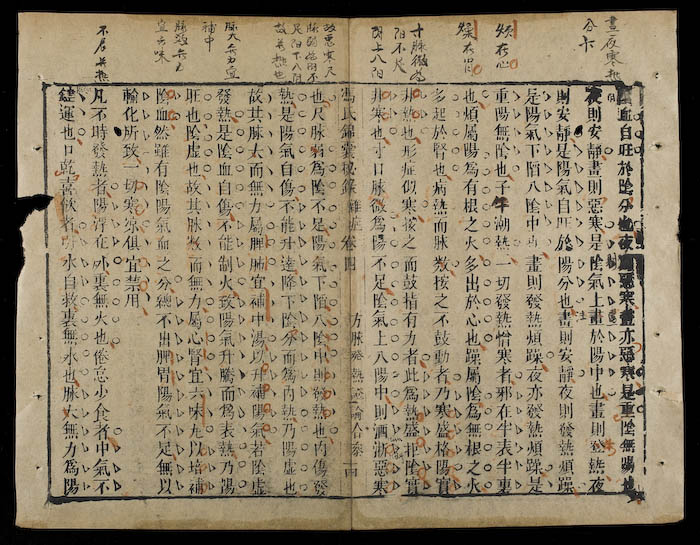 晝夜寒熱
分卞
煩在心
燥在腎
寸脉微為
陽不足
也
故惡寒尺
脉弱陰不
足陽下入陰
故發熱也
脉大無力宜
補中
脉數無力
宜六味
血自旺於陰分也夜則惡寒晝亦惡寒是重陰無陽也
夜則安靜晝則惡寒是陰氣上晝於陽中也晝則發熱夜
則安靜是陽氣自旺於陽分也晝則安靜夜則發熱煩躁
是陽氣下陷入陰中也晝則發熱煩躁夜亦發熱煩躁是
重陽無陰也子午潮熱一切發熱憎寒者邪在半表半裏
也煩屬陽為有根之火多出於心也躁屬陰為無根之火
多起於腎也病熱而脉數按之不鼓動者乃寒盛格陽實
非熱也形症似寒按之而鼓指有力者此為熱盛拒陰實
非寒也寸口脉微為陽不足陰氣上入陽中則洒淅惡寒
馮氏錦囊秘錄 雜症 卷四 方脉發熱 合參
也尺脉弱為陰不足陽氣下陷入陰中則發熱也內傷發
熱是陽氣自傷不能升達降下陰分而為內熱乃陽虛也
故其脉大而無力屬脾肺宜補中湯以升補陽氣若陰虛
發熱是陰血自傷不能制火致陽氣升騰而為表熱乃陽
旺也陰虛也故其脉數而無力屬心腎宜六味丸以培補
陰血然雖有陰陽氣血之分總不出脾胃陽氣不足無以
輸化所致一切寒涼俱宜禁用
凡不時發熱者陽浮在外裏無火也倦怠少食者中氣不
健運也口乾喜飲者引水自救裏無水也脉大無力為陽